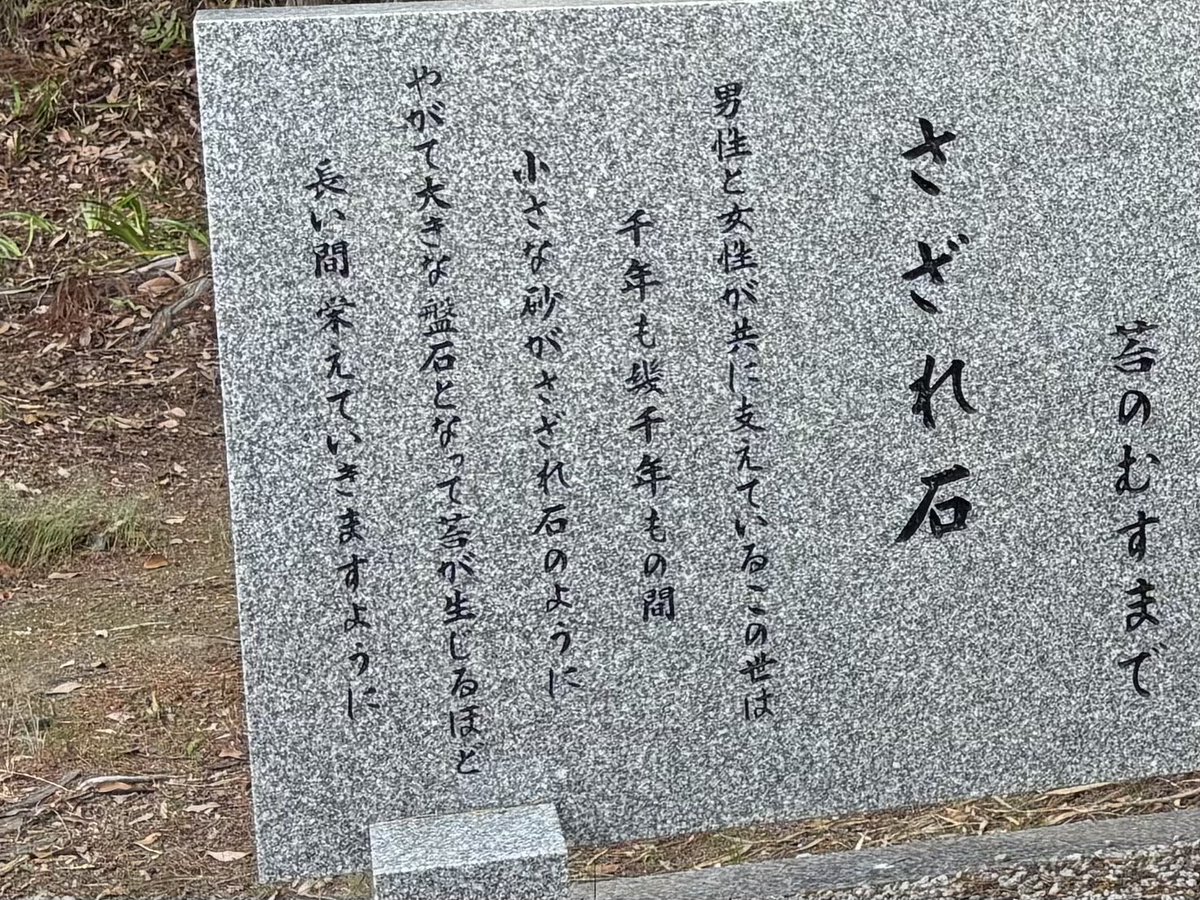 苔のむすまで
さざれ石
男性と女性が共に支えているこの世は
千年も幾千年もの間
小さな砂がさざれ石のように
やがて大きな盤石となって苔が生じるほど
長い間栄えていきますように